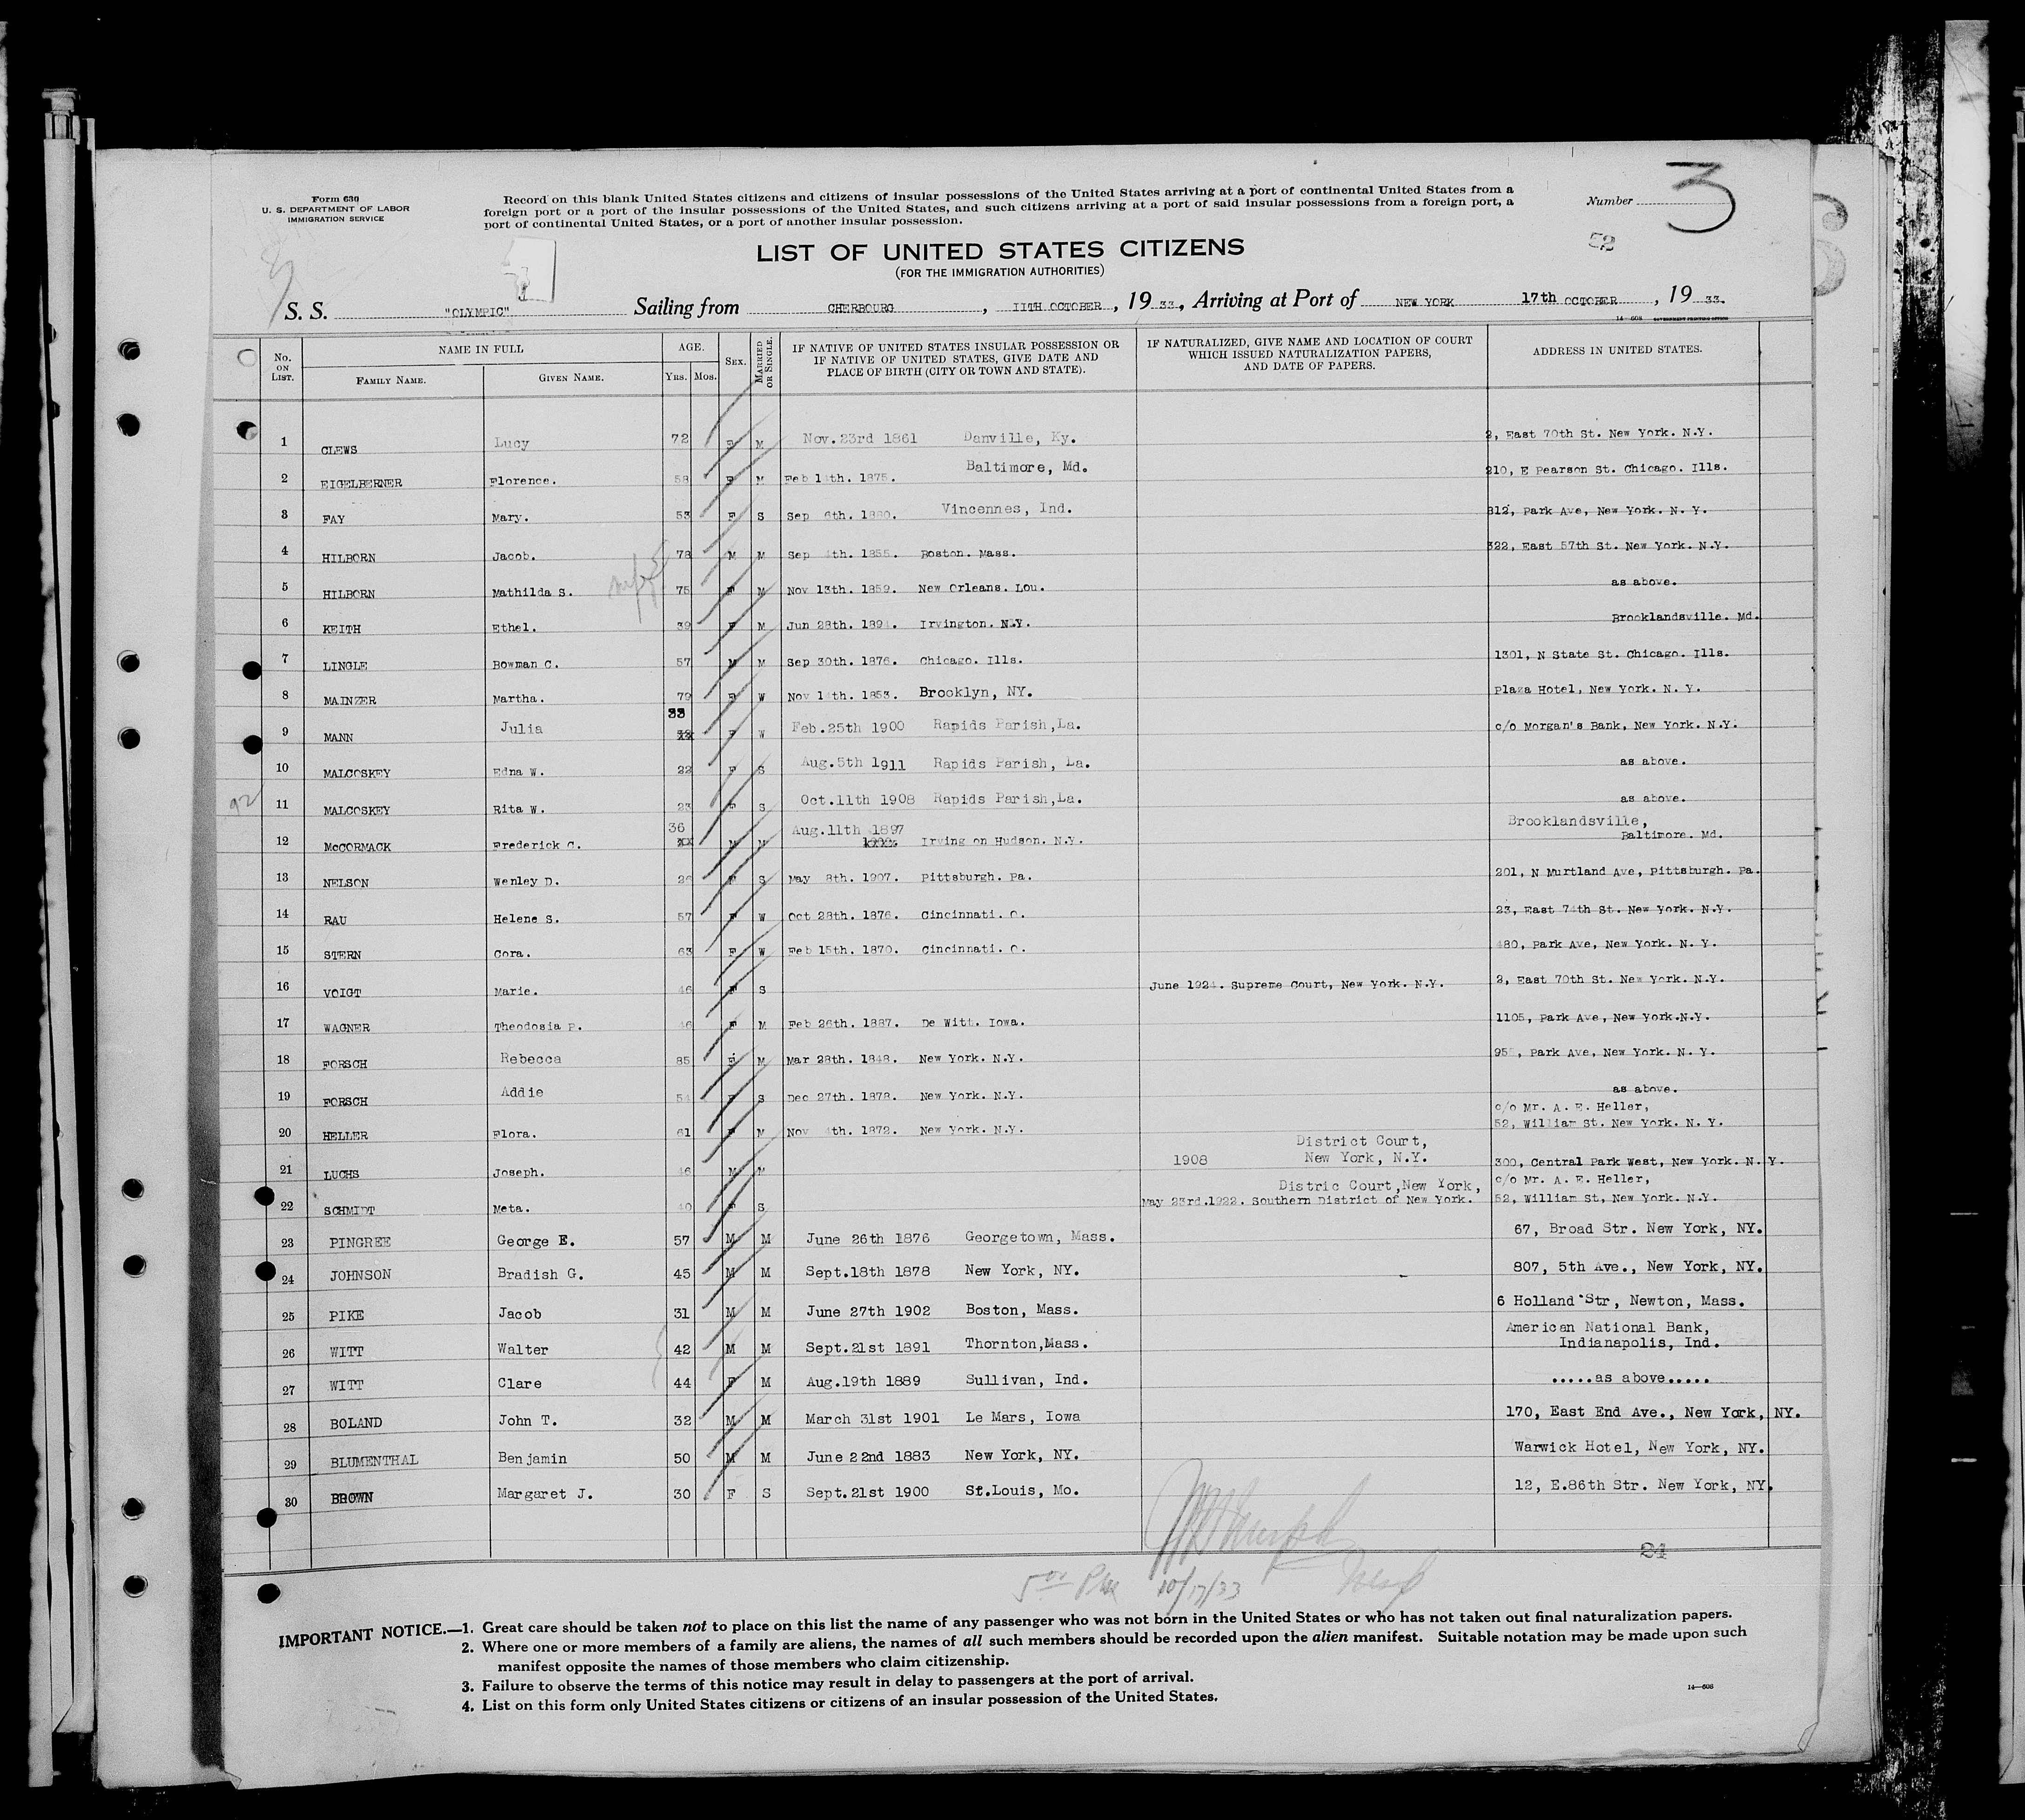 Form 630
U. S. DEPARTMENT OF LABOR
IMMIGRATION SERVICE
Record on this blank United States citizens and citizens of insular possessions of the United States arriving at a port of continental United States from a
foreign port or a port of the insular possessions of the United States, and such citizens arriving at a port of said insular possessions from a foreign port, a
port of continental United States, or a port of another insular possession.
Number 3
52
LIST OF UNITED STATES CITIZENS
(FOR THE IMMIGRATION AUTHORITIES)
S. S. "OLYMPIC" Sailing from CHERBOURG, 11TH OCTOBER, 19 33, Arriving at Port of NEW YORK 17th OCTOBER, 19 33.
14—608 GOVERNMENT PRINTING OFFICE
No. ON LIST. NAME IN FULL FAMILY NAME. GIVEN NAME. AGE. YRS. MOS. SEX. MARRIED OR SINGLE. IF NATIVE OF UNITED STATES INSULAR POSSESSION OR IF NATIVE OF UNITED STATES, GIVE DATE AND PLACE OF BIRTH (CITY OR TOWN AND STATE). IF NATURALIZED, GIVE NAME AND LOCATION OF COURT WHICH ISSUED NATURALIZATION PAPERS, AND DATE OF PAPERS. ADDRESS IN UNITED STATES.
1 CLEWS Lucy 72 F M Nov.23rd 1861 Danville, Ky. 2, East 70th St. New York. N.Y.
2 EIGELBERNER Florence. 58 F M Feb 1th. 1875. Baltimore, Md. 210, E Pearson St. Chicago. Ills.
3 FAY Mary. 53 F S Sep 6th. 1880. Vincennes, Ind. 812, Park Ave, New York. N. Y.
4 HILBORN Jacob. 78 M M Sep 4th. 1855. Boston. Mass. 322, East 57th St. New York. N.Y.
5 HILBORN Mathilda S. 75 F M Nov 13th. 1859. New Orleans. Lou. as above.
6 KEITH Ethel. 39 F M Jun 28th. 1894. Irvington. N.Y. Brooklandsville. Md.
7 LINGLE Bowman C. 57 M M Sep 30th. 1876. Chicago. Ills. 1301, N State St. Chicago. Ills.
8 MAINZER Martha. 79 F W Nov 14th. 1853. Brooklyn, NY. Plaza Hotel, New York. N. Y.
9 MANN Julia 33 F W Feb.25th 1900 Rapids Parish,La. c/o Morgan's Bank, New York. N.Y.
10 MALCOSKEY Edna W. 22 F S Aug.5th 1911 Rapids Parish, La. as above.
11 MALCOSKEY Rita W. 23 F S Oct.11th 1908 Rapids Parish,La. as above.
92
12 McCORMACK Frederick C. 36 M M Aug.11th 1897 Irving on Hudson. N.Y. Brooklandsville, Baltimore. Md.
13 NELSON Wenley D. 26 F S May 8th. 1907. Pittsburgh. Pa. 201, N Murtland Ave, Pittsburgh. Pa.
14 RAU Helene S. 57 F W Oct 28th. 1876. Cincinnati. O. 23, East 74th St. New York. N.Y.
15 STERN Cora. 63 F W Feb 15th. 1870. Cincinnati. O. 480, Park Ave, New York. N. Y.
16 VOIGT Marie. 46 F S June 1924. Supreme Court, New York. N.Y. 2, East 70th St. New York. N.Y.
17 WAGNER Theodosia P. 46 F M Feb 26th. 1887. De Witt. Iowa. 1105, Park Ave, New York.N.Y.
18 FORSCH Rebecca 85 F M Mar 28th. 1848. New York. N.Y. 955, Park Ave, New York. N. Y.
19 FORSCH Addie 54 F S Dec 27th. 1878. New York. N.Y. as above.
20 HELLER Flora. 61 F M Nov 4th. 1872. New York. N.Y. c/o Mr. A. E. Heller, 52, William St. New York. N. Y.
21 LUCHS Joseph. 46 M M 1908 District Court, New York, N.Y. 300, Central Park West, New York. N.Y.
22 SCHMIDT Meta. 40 F S May 23rd.1922. Distric Court,New York, Southern District of New York. c/o Mr. A. E. Heller, 52, William St, New York. N.Y.
23 PINGREE George E. 57 M M June 26th 1876 Georgetown, Mass. 67, Broad Str. New York, NY.
24 JOHNSON Bradish G. 45 M M Sept.18th 1878 New York, NY. 807, 5th Ave., New York, NY.
25 PIKE Jacob 31 M M June 27th 1902 Boston, Mass. 6 Holland Str, Newton, Mass.
26 WITT Walter 42 M M Sept.21st 1891 Thornton,Mass. American National Bank, Indianapolis, Ind.
27 WITT Clare 44 F M Aug.19th 1889 Sullivan, Ind. .....as above.....
28 BOLAND John T. 32 M M March 31st 1901 Le Mars, Iowa 170, East End Ave., New York, NY.
29 BLUMENTHAL Benjamin 50 M M June 22nd 1883 New York, NY. Warwick Hotel, New York, NY.
30 BROWN Margaret J. 30 F S Sept.21st 1900 St.Louis, Mo. 12, E.86th Str. New York, NY.
24
10/17/33
IMPORTANT NOTICE.—1. Great care should be taken not to place on this list the name of any passenger who was not born in the United States or who has not taken out final naturalization papers.
2. Where one or more members of a family are aliens, the names of all such members should be recorded upon the alien manifest. Suitable notation may be made upon such
manifest opposite the names of those members who claim citizenship.
3. Failure to observe the terms of this notice may result in delay to passengers at the port of arrival.
4. List on this form only United States citizens or citizens of an insular possession of the United States.
14—608